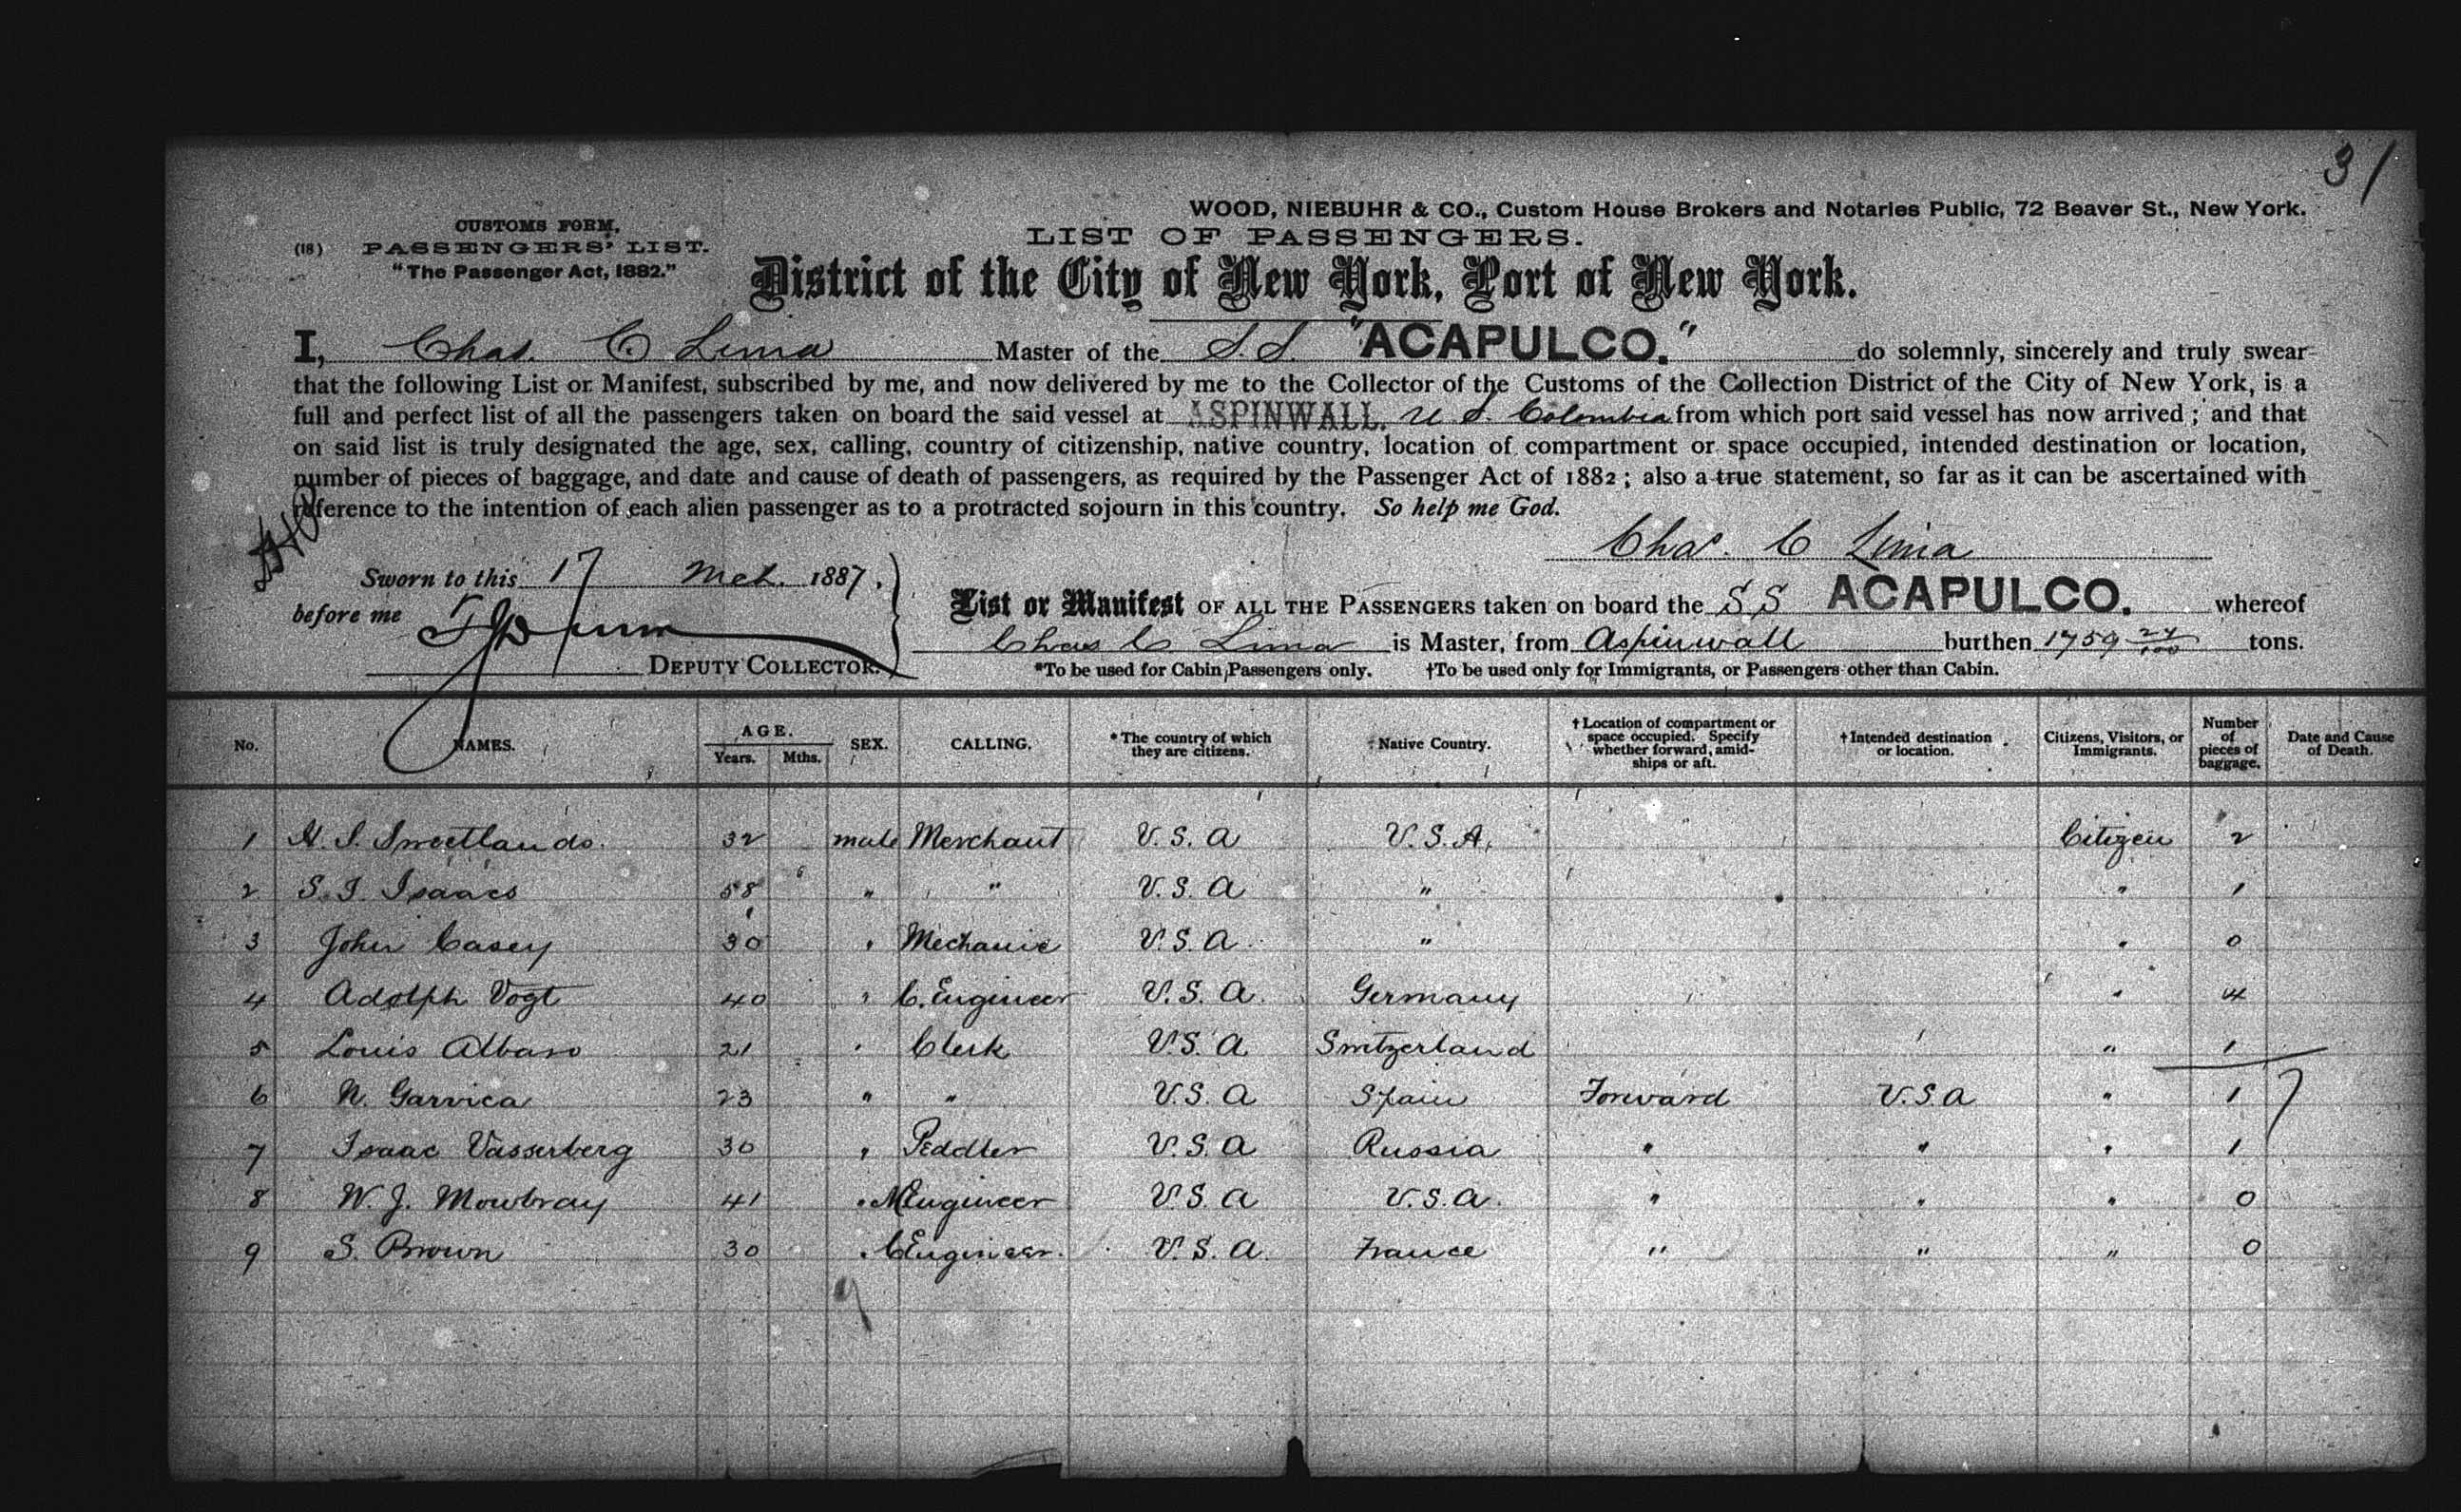 31
WOOD, NIEBUHR & CO., Custom House Brokers and Notaries Public, 72 Beaver St., New York.
CUSTOMS FORM.
(18) PASSENGERS' LIST.
"The Passenger Act, 1882."
LIST OF PASSENGERS.
District of the City of New York, Port of New York.
I, Chas. C Lima Master of the S.S. "ACAPULCO." do solemnly, sincerely and truly swear
that the following List or Manifest, subscribed by me, and now delivered by me to the Collector of the Customs of the Collection District of the City of New York, is a
full and perfect list of all the passengers taken on board the said vessel at ASPINWALL. U. S. Colombia from which port said vessel has now arrived; and that
on said list is truly designated the age, sex, calling, country of citizenship, native country, location of compartment or space occupied, intended destination or location,
number of pieces of baggage, and date and cause of death of passengers, as required by the Passenger Act of 1882; also a true statement, so far as it can be ascertained with
reference to the intention of each alien passenger as to a protracted sojourn in this country. So help me God.
Chas. C Lima
Sworn to this 17 Mch. 1887.
before me
DEPUTY COLLECTOR.
List or Manifest OF ALL THE PASSENGERS taken on board the SS ACAPULCO. whereof
Chas C Lima is Master, from Aspinwall burthen 1759 24/100 tons.
*To be used for Cabin Passengers only. †To be used only for Immigrants, or Passengers other than Cabin.
No. NAMES. AGE. Years. Mths. SEX. CALLING. *The country of which they are citizens. Native Country. †Location of compartment or space occupied. Specify whether forward, amidships or aft. †Intended destination or location. Citizens, Visitors, or Immigrants. Number of pieces of baggage. Date and Cause of Death.
1 H. S. Sweetlands. 32 male Merchant U. S. A U.S.A. Citizen 2
2 S. I. Isaacs 58 " " U. S. A " " 1
3 John Casey 30 " Mechanic U. S. A " " 0
4 Adolph Vogt 40 " C. Engineer U. S. A. Germany " 4
5 Louis Albaso 21 " Clerk U. S. A Switzerland " 1
6 N. Garvica 23 " " U. S. A Spain Forward U.S.A " 1
7 Isaac Vasserberg 30 " Peddler U. S. A Russia " " " 1
8 W. J. Mowbray 41 " M Engineer U. S. A U.S.A. " " " 0
9 S. Brown 30 " C Engineer. U. S. A. France " " " 0
9